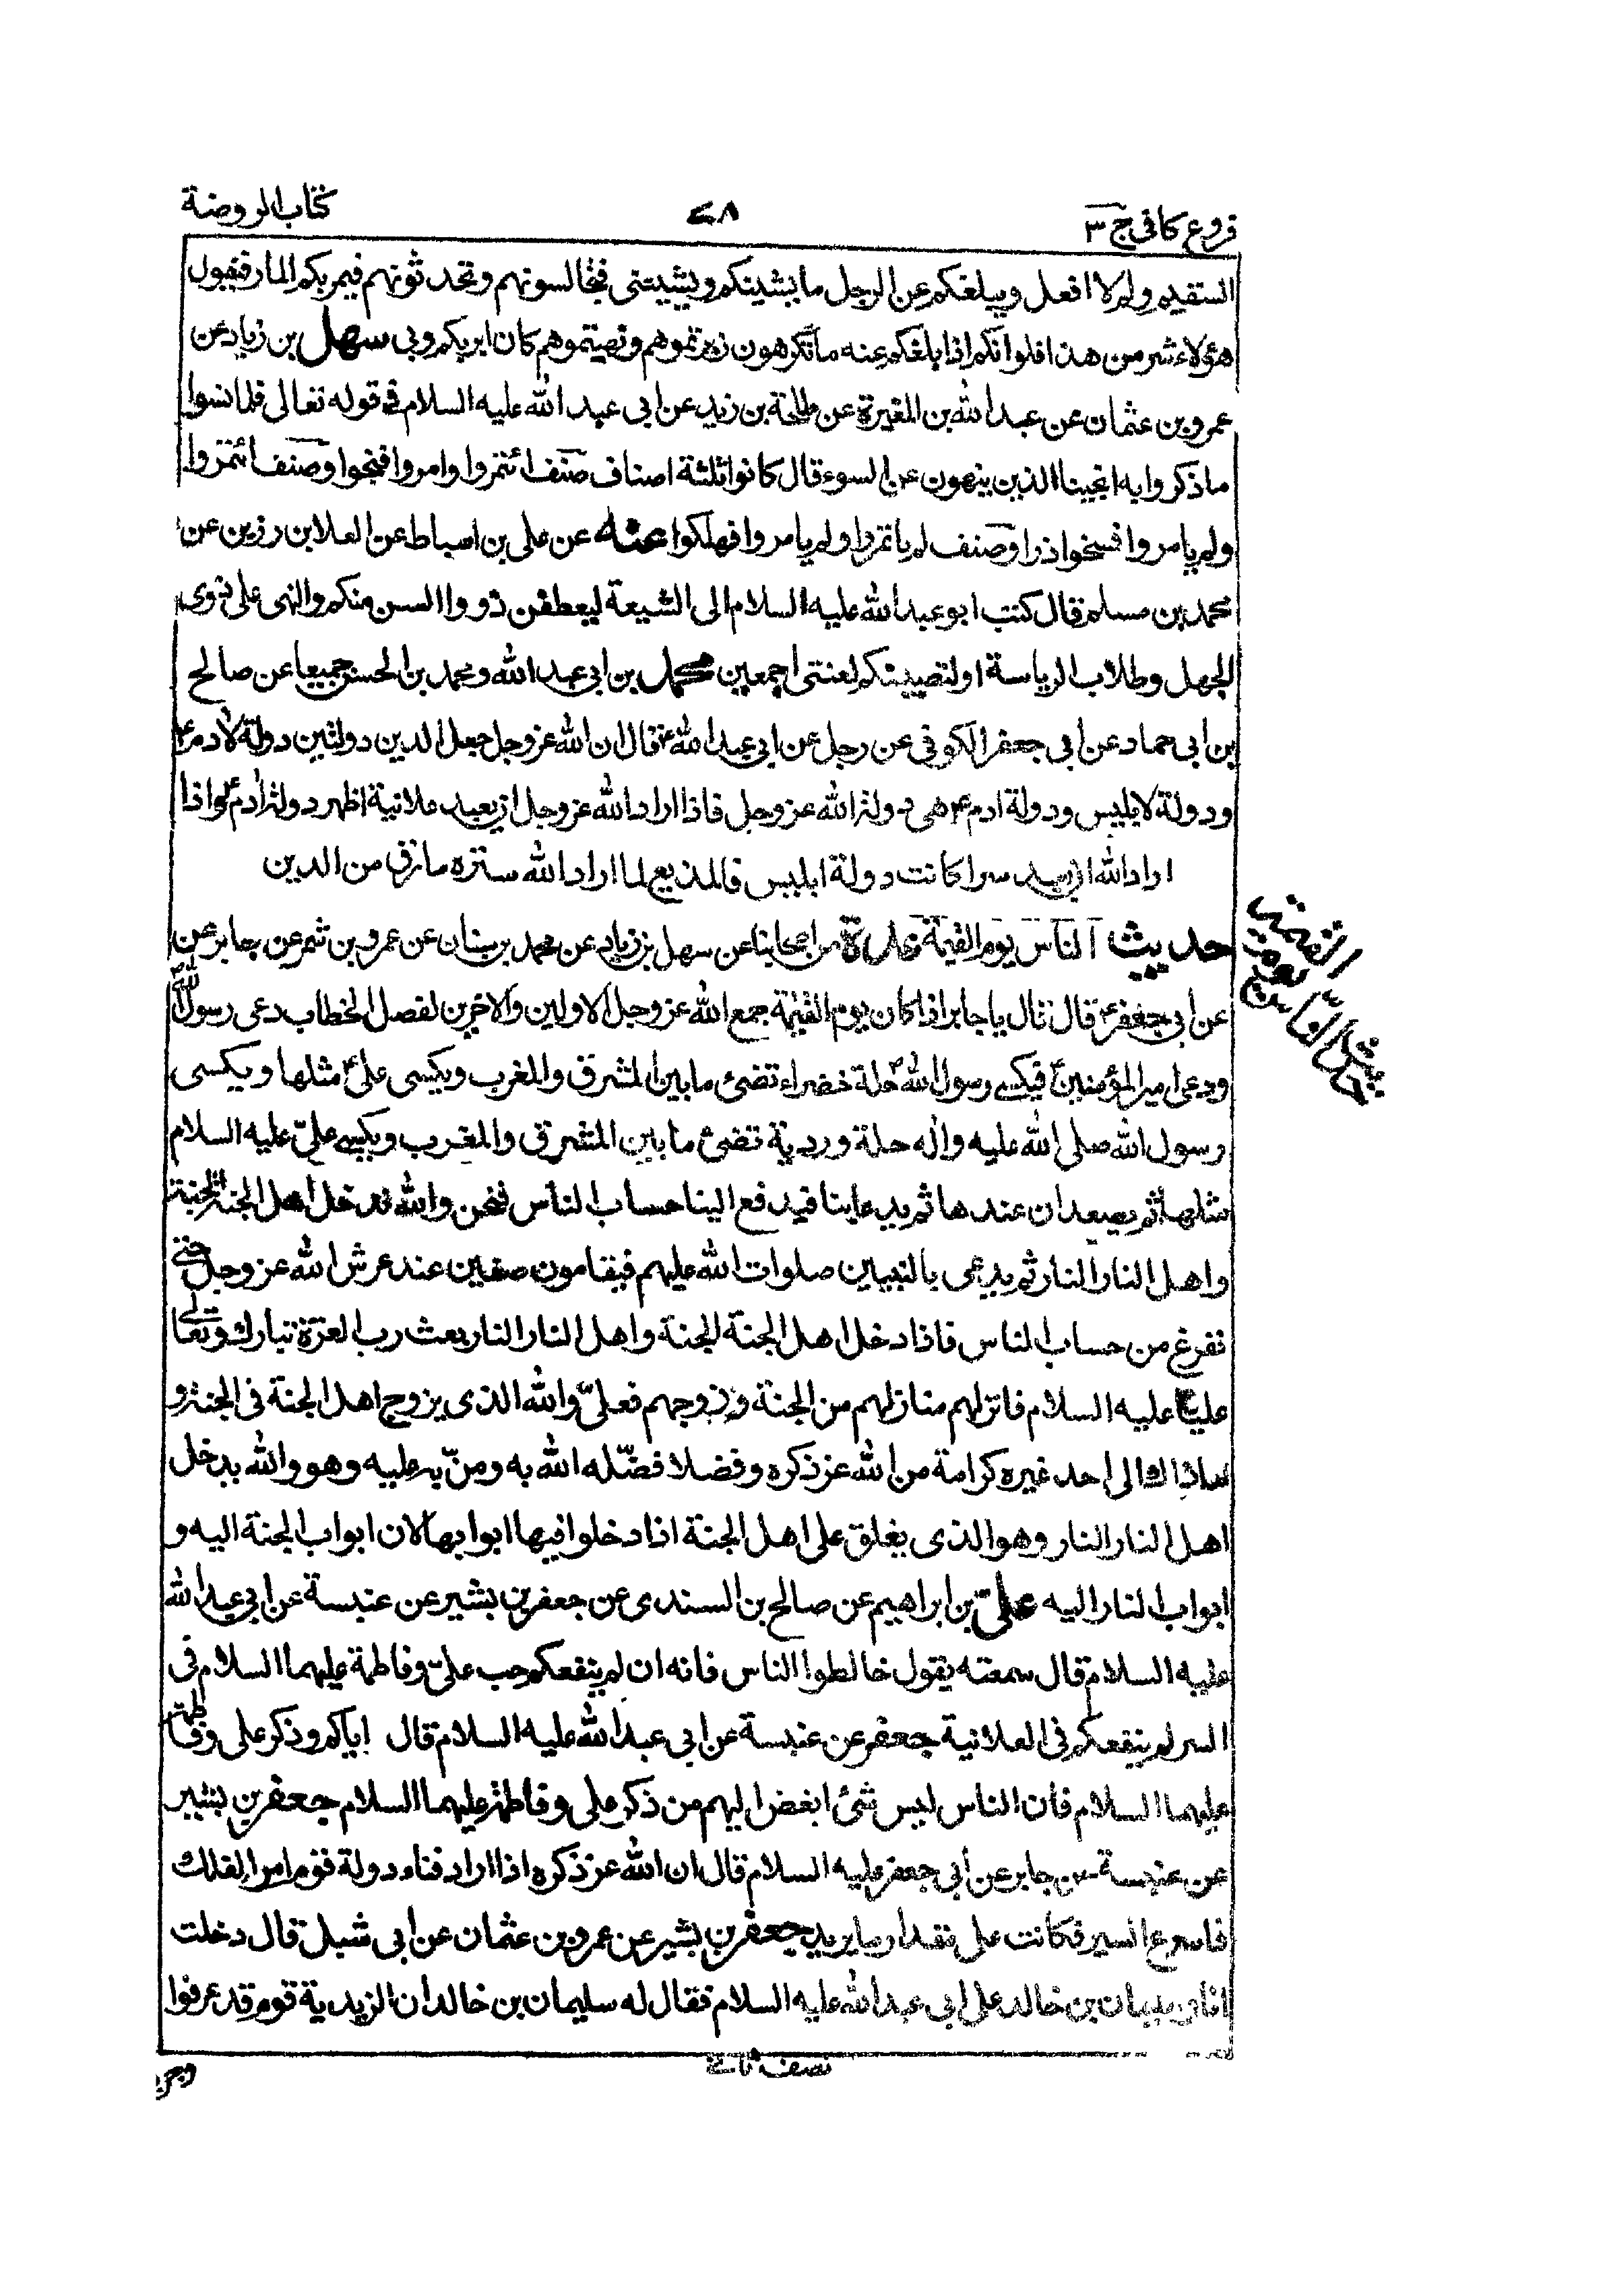 فروع كافى ج ٣
٧٨
كتاب الروضة
السقيم ولم لا افعل ويبلغكم عن الرجل ما يشينكم ويشينني فتجالسونهم وتحدثونهم فيمر بكم المار فيقول
هؤلاء شر من هذا فلو انكم اذا بلغكم عنه ما تكرهون زبرتموهم ونهيتموهم كان ابر بكم وبى سهل بن زياد عن
عمرو بن عثمان عن عبد الله بن المغيرة عن طلحة بن زيد عن ابى عبد الله عليه السلام فى قوله تعالى فلما نسوا
ما ذكروا به انجينا الذين ينهون عن السوء قال كانوا ثلثة اصناف صنف ائتمروا وامروا فنجوا وصنف ائتمروا
ولم يامروا فمسخوا ذرا وصنف لم ياتمروا ولم يامروا فهلكوا عنه عن على بن اسباط عن العلا بن رزين عن
محمد بن مسلم قال كتب ابو عبد الله عليه السلام الى الشيعة ليعطفن ذووا السن منكم والنهى على ذوى
الجهل وطلاب الرياسة او لتصيبنكم لعنتى اجمعين محمد بن ابى عبد الله ومحمد بن الحسن جميعا عن صالح
بن ابى حماد عن ابى جعفر الكوفى عن رجل عن ابى عبد الله ع قال ان الله عز وجل جعل الدين دولتين دولة لادم ع
ودولة لابليس ودولة ادم ع هى دولة الله عز وجل فاذا اراد الله عز وجل ان يعبد علانية اظهر دولة ادم ع واذا
اراد الله ان يعبد سرا كانت دولة ابليس فالمذيع لما اراد الله ستره مارق من الدين
حديث الناس يوم القيمة عدة من اصحابنا عن سهل بن زياد عن محمد بن سنان عن عمرو بن شمر عن جابر عن
عن ابى جعفر ع قال قال يا جابر اذا كان يوم القيمة جمع الله عز وجل الاولين والاخرين لفصل الخطاب دعى رسول الله
ودعى امير المؤمنين ع فيكسى رسول الله ص حلة خضراء تضئ ما بين المشرق والمغرب ويكسى على ع مثلها ويكسى
رسول الله صلى الله عليه واله حلة وردية تضئ ما بين المشرق والمغرب ويكسى على عليه السلام
مثلها ثم يصعدان عندها ثم يدعى بنا فيدفع الينا حساب الناس فنحن والله ندخل اهل الجنة الجنة
واهل النار النار ثم يدعى بالنبيين صلوات الله عليهم فيقامون صفين عند عرش الله عز وجل حتى
نفرغ من حساب الناس فاذا دخل اهل الجنة الجنة واهل النار النار بعث رب العزة تبارك وتعالى
عليا عليه السلام فانزلهم منازلهم من الجنة وزوجهم فعلىّ والله الذى يزوج اهل الجنة فى الجنة و
ما ذاك الى احد غيره كرامة من الله عز ذكره وفضلا فضّله الله به ومنّ به عليه وهو والله يدخل
اهل النار النار وهو الذى يغلق على اهل الجنة اذا دخلوا فيها ابوابها لان ابواب الجنة اليه و
ابواب النار اليه على بن ابراهيم عن صالح بن السندى عن جعفر بن بشير عن عنبسة عن ابى عبد الله
عليه السلام قال سمعته يقول خالطوا الناس فانه ان لم ينفعكم حب علىّ وفاطمة عليهما السلام فى
السر لم ينفعكم فى العلانية جعفر عن عنبسة عن ابى عبد الله عليه السلام قال اياكم وذكر على وفاطمة
عليهما السلام فان الناس ليس شئ ابغض اليهم من ذكر على وفاطمة عليهما السلام جعفر بن بشير
عن عنبسة عن جابر عن ابى جعفر عليه السلام قال ان الله عز ذكره اذا اراد فناء دولة قوم امر الفلك
فاسرع السير فكانت على مقدار ما يريد جعفر بن بشير عن عمرو بن عثمان عن ابى شبل قال دخلت
انا وسليمان بن خالد على ابى عبد الله عليه السلام فقال له سليمان بن خالد ان الزيدية قوم قد عرفوا
حديث الناس يوم القيمة
نصف ثانى
وجربوا